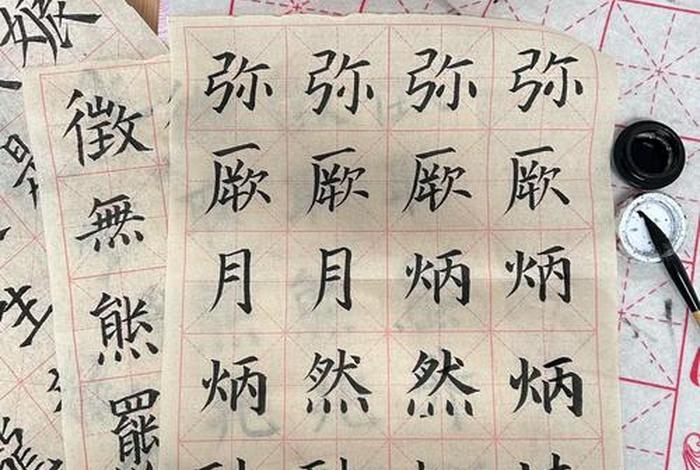 弥弥弥弥
厥厥厥厥
月月炳炳
炳然然炳
徵
無
熊